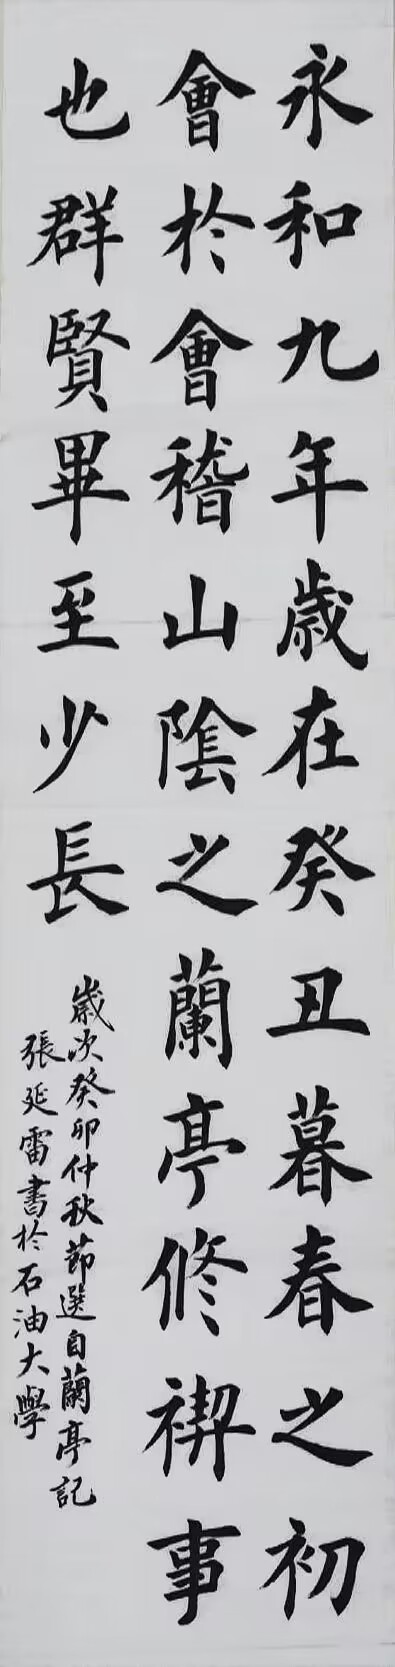 永和九年歲在癸丑暮春之初
會於會稽山陰之蘭亭修禊事
也群賢畢至少長
歲次癸卯仲秋節選自蘭亭記
張延雷書於石油大學